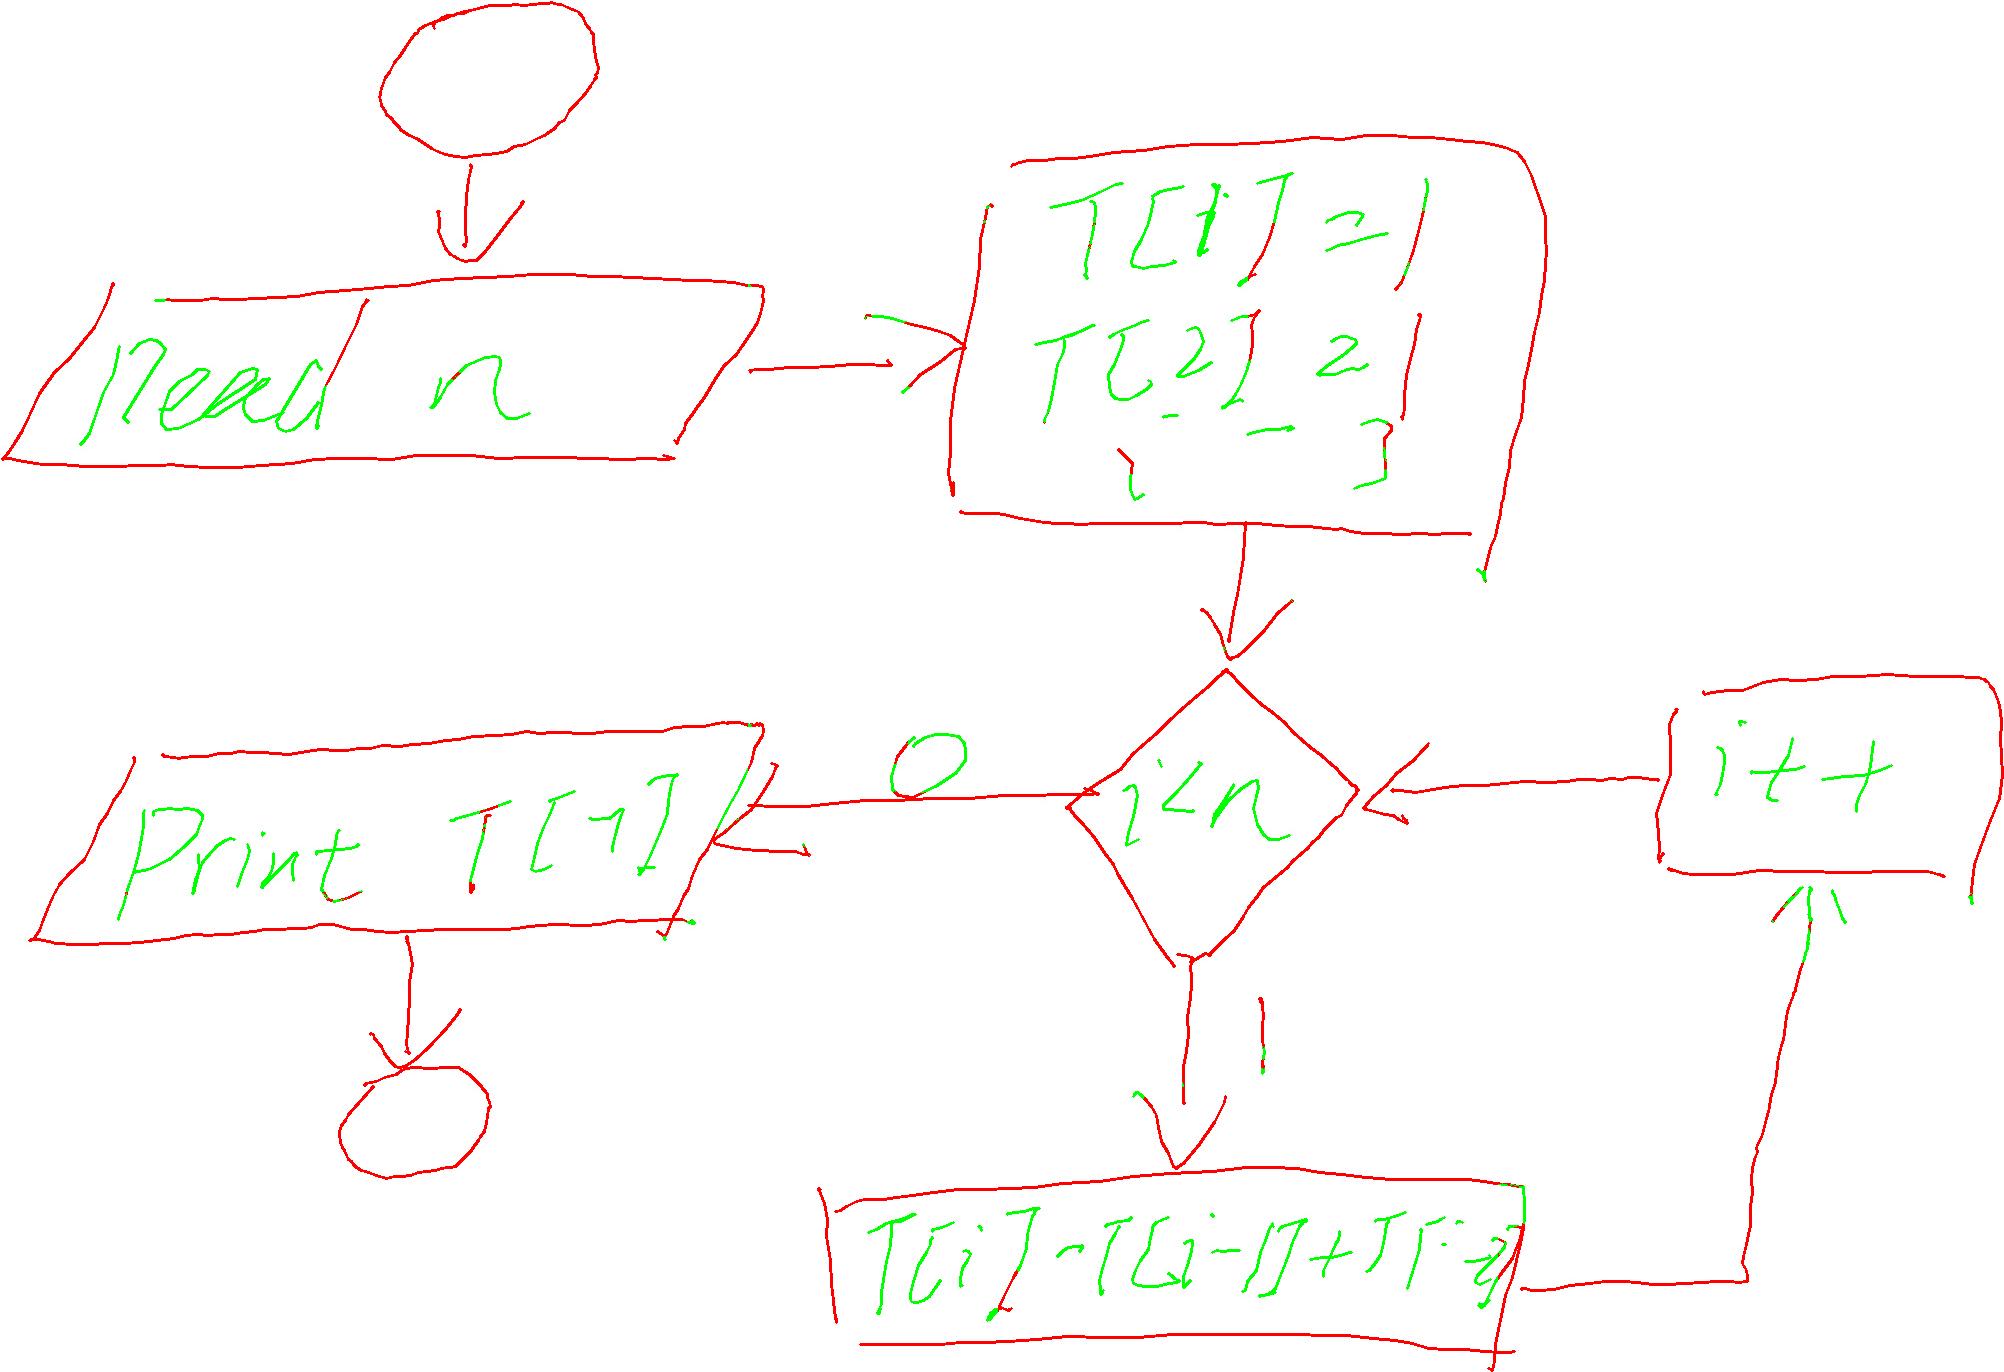 Read n
T[1] = 1
T[2] = 1
i = 3
0
i<n
i++
Print T[n]
1
T[i] = T[i-1]+T[i-2]